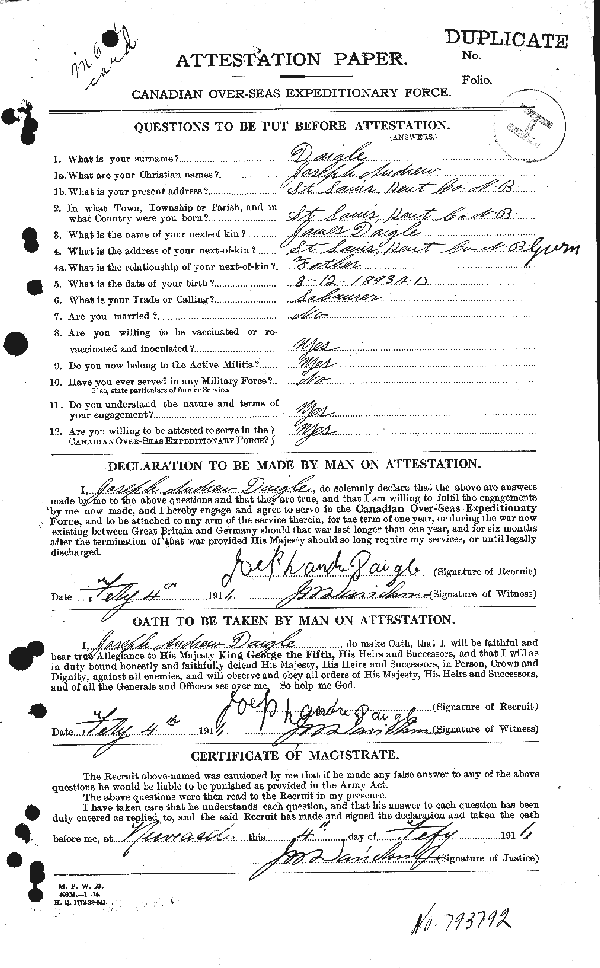 DUPLICATE
in G
card
ATTESTATION PAPER.
No.
Folio.
CANADIAN OVER-SEAS EXPEDITIONARY FORCE.
QUESTIONS TO BE PUT BEFORE ATTESTATION.
(ANSWERS)
1. What is your surname? Daigle
1a. What are your Christian names? Joseph Andrew
1b. What is your present address? St Louis Kent Co N B
2. In what Town, Township or Parish, and in
what Country were you born? St Louis Kent Co N B
3. What is the name of your next-of-kin? James Daigle
4. What is the address of your next-of-kin? St Louis Kent Co N B
4a. What is the relationship of your next-of-kin? Father
5. What is the date of your birth? 8-12-1893 A.D
6. What is your Trade or Calling? Labourer
7. Are you married? No
8. Are you willing to be vaccinated or re-
vaccinated and inoculated? Yes
9. Do you now belong to the Active Militia? Yes
10. Have you ever served in any Military Force? No
If so, state particulars of former Service
11. Do you understand the nature and terms of
your engagement? Yes
12. Are you willing to be attested to serve in the
CANADIAN OVER-SEAS EXPEDITIONARY FORCE? Yes
DECLARATION TO BE MADE BY MAN ON ATTESTATION.
I, Joseph Andrew Daigle, do solemnly declare that the above are answers
made by me to the above questions and that they are true, and that I am willing to fulfil the engagements
by me now made, and I hereby engage and agree to serve in the Canadian Over-Seas Expeditionary
Force, and to be attached to any arm of the service therein, for the term of one year, or during the war now
existing between Great Britain and Germany should that war last longer than one year, and for six months
after the termination of that war provided His Majesty should so require my services, or until legally
discharged.
Joseph andre Daigle (Signature of Recruit)
Date Feby 4th 1916 (Signature of Witness)
OATH TO BE TAKEN BY MAN ON ATTESTATION.
I, Joseph Andrew Daigle, do make Oath, that I will be faithful and
bear true Allegiance to His Majesty King George the Fifth, His Heirs and Successors, and that I will as
in duty bound honestly and faithfully defend His Majesty, His Heirs and Successors, in Person, Crown and
Dignity, against all enemies, and will observe and obey all orders of His Majesty, His Heirs and Successors,
and of all the Generals and Officers set over me. So help me God.
Joseph andre Daigle (Signature of Recruit)
Date Feby 4th 1916 (Signature of Witness)
CERTIFICATE OF MAGISTRATE.
The Recruit above-named was cautioned by me that if he made any false answer to any of the above
questions he would be liable to be punished as provided in the Army Act.
The above questions were then read to the Recruit in my presence.
I have taken care that he understands each question, and that his answer to each question has been
duly entered as replied to, and the said Recruit has made and signed the declaration and taken the oath
before me, at this 4th day of Feby 1916
(Signature of Justice)
M. F. W. 23.
No. 793792